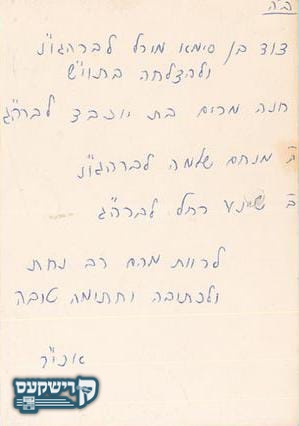 ב"ה
דוד בן סימא מירל לברהגו"נ
ולהצלחה בתוי"ש
חנה מרים בת יוכבד לברה"ג
ב' מנחם שלמה לברהגו"נ
ב' שיינע רחל לברה"ג
לרוות מהם רב נחת
ולכתיבה וחתימה טובה
אכי"ר
קרישקעס